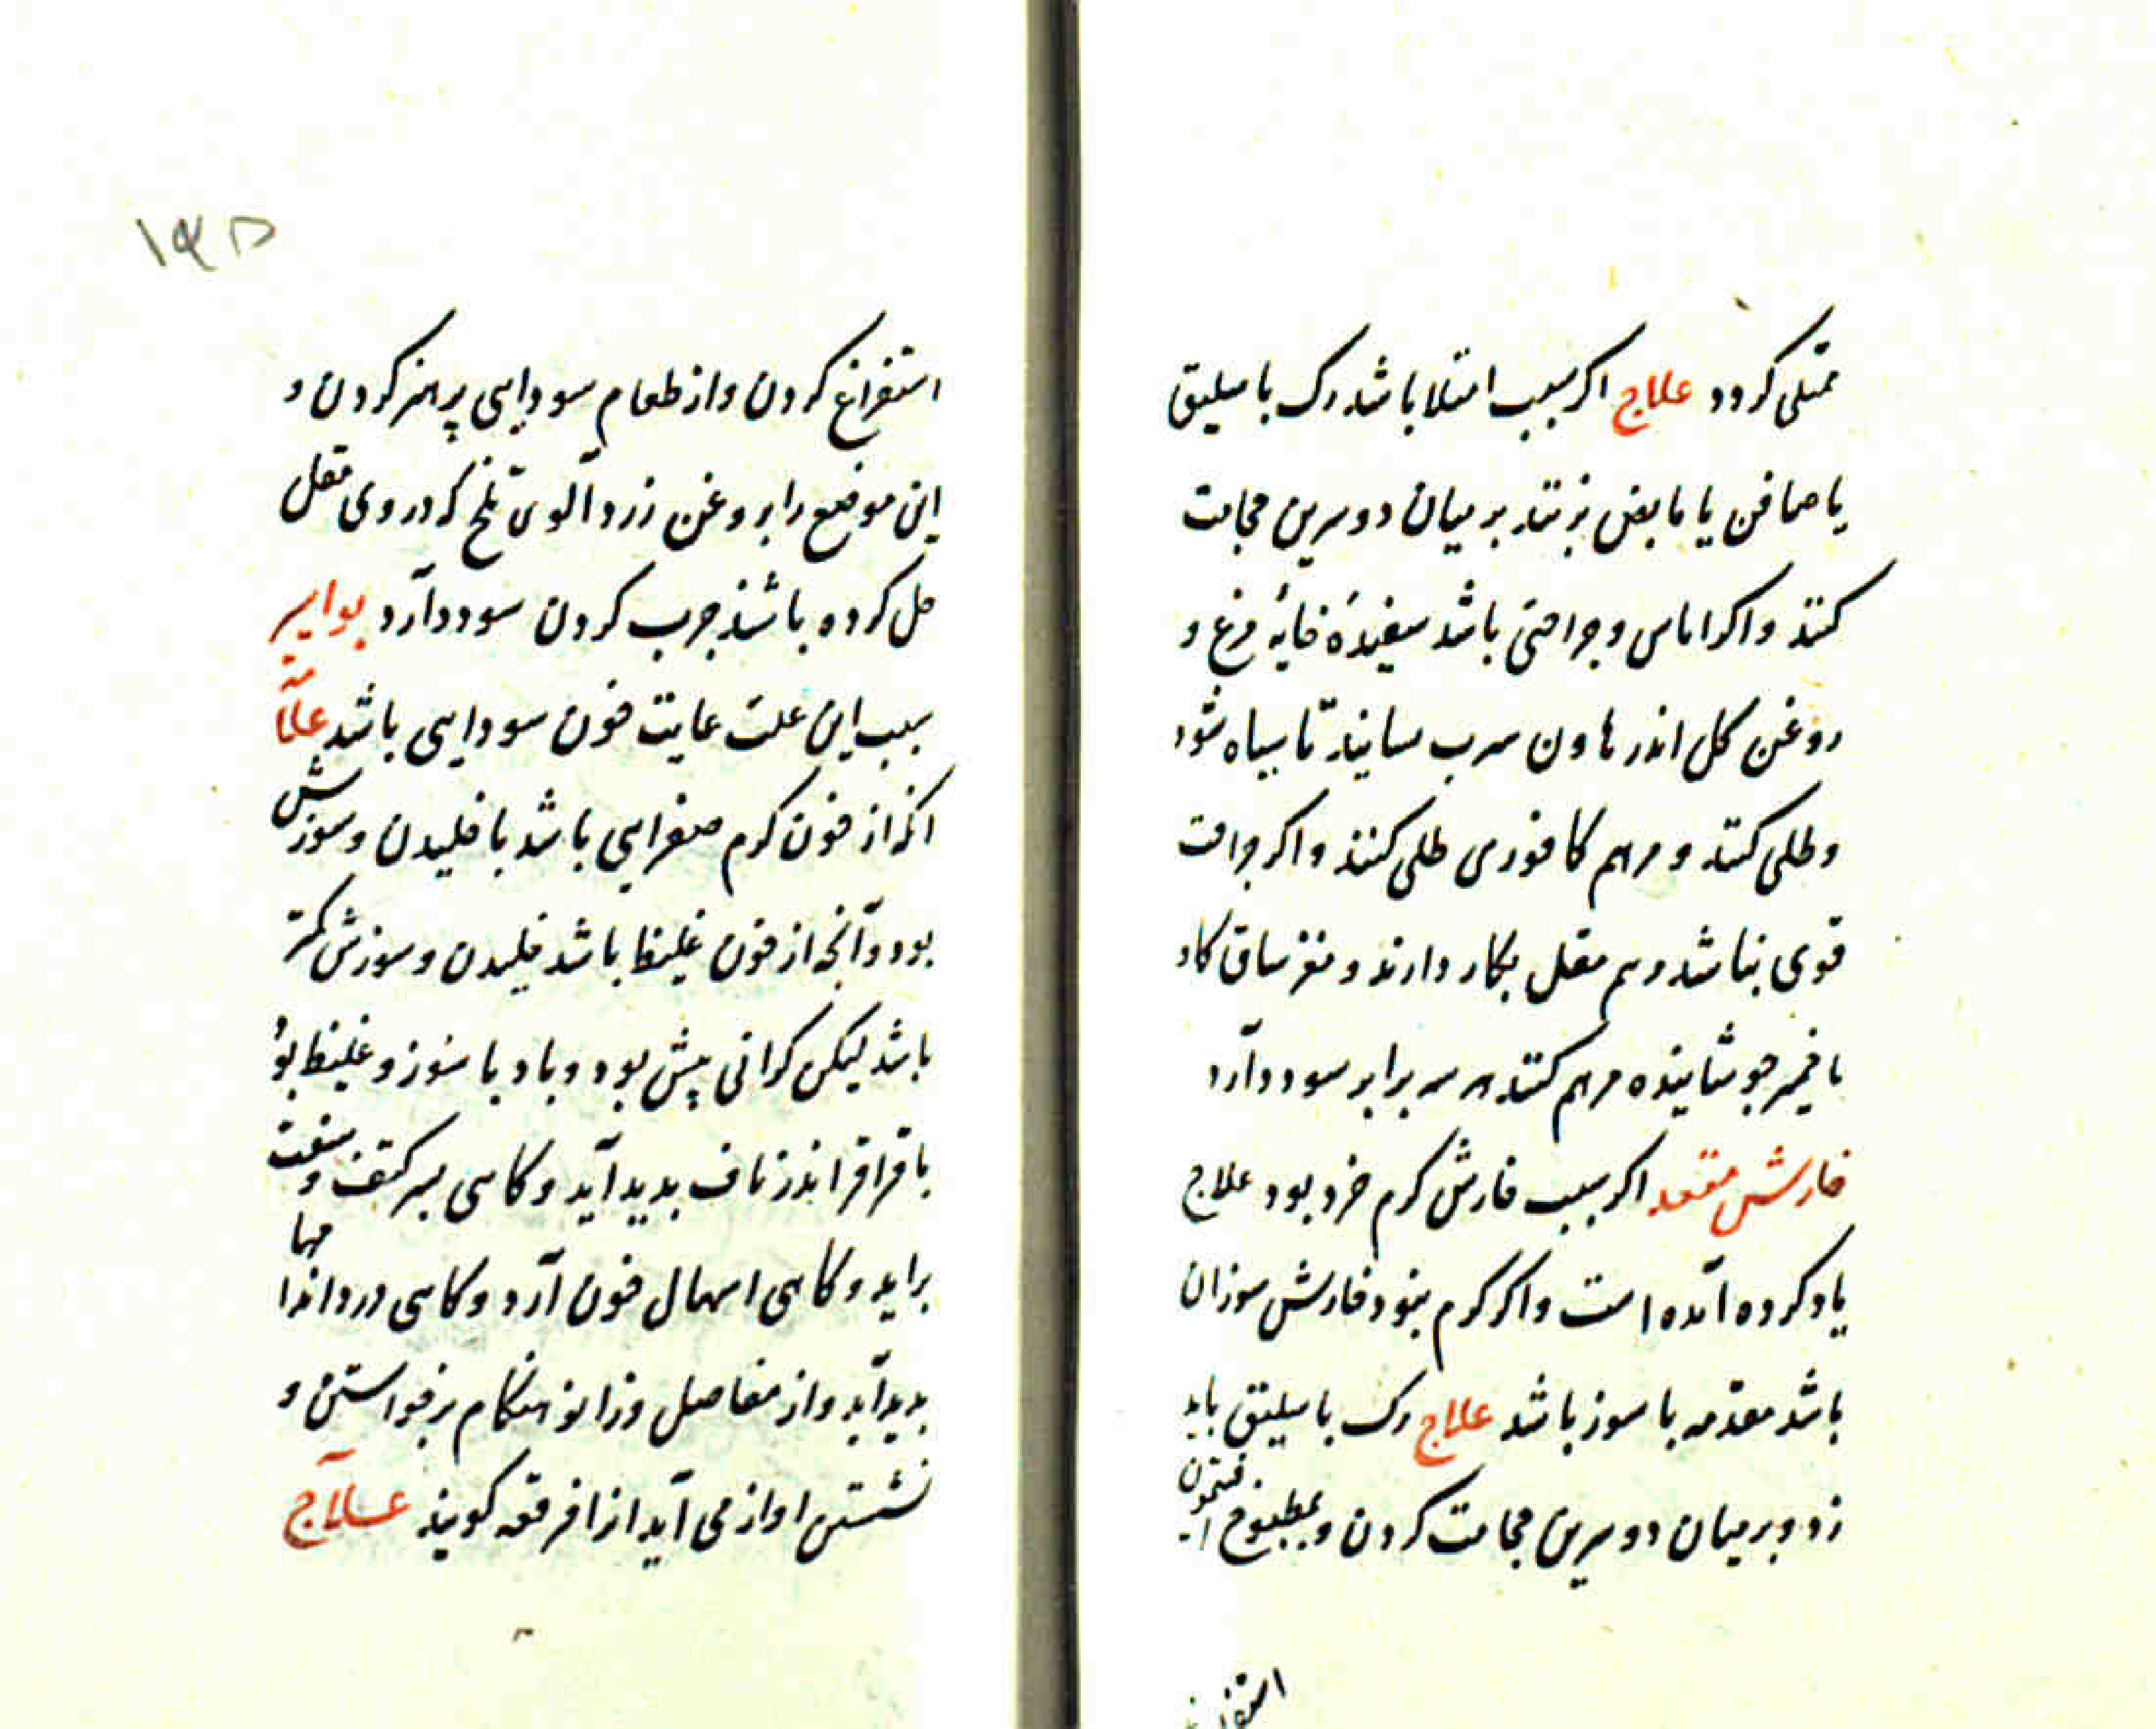 ممتلی کردد علاج اکر سبب امتلا باشد رک باسلیق
یا صافن یا مابض بزنند بر میان دو سرین حجامت
کنند و اکر اماس و جراحتی باشد سفیدهٔ خایهٔ مرغ و
روغن کل اندر هاون سرب سایند تا سیاه شود
و طلی کنند و مرهم کافوری طلی کنند و اکر جراحت
قوی نباشد مرهم مقل بکار دارند و مغز ساق کاو
با خمیر جوشانیده مرهم کنند هر سه برابر سود دارد
خارش مقعد اکر سبب خارش کرم خرد بود علاج
یاد کرده آمده است و اکر کرم نبود خارش سوزان
باشد مقدمه باسور باشد علاج رک باسلیق باید
زد و بر میان دو سرین حجامت کردن و بمطبوخ افتیمون
استفراغ
۱۴۵
استفراغ کردن و از طعام سودایی پرهیز کردن و
این موضع را بروغن زردآلوی تلخ که در وی مقل
حل کرده باشند چرب کردن سود دارد بواسیر
سبب این علت غایت خون سودایی باشد علامت
آنکه از خون کرم صفرایی باشد با خلیدن و سوزش
بود و آنچه از خون غلیظ باشد خلیدن و سوزش کمتر
باشد لیکن کرانی بیش بود و باد باسور و غلیظ بود
با قراقر اندر ناف بدید آید و کاهی بسر کتف و سفت
براید و کاهی اسهال خون آرد و کاهی درد اندامها
بدید آید و از مفاصل و زانو هنکام برخواستن و
نشستن اواز می آید انرا فرقعه کویند علاج